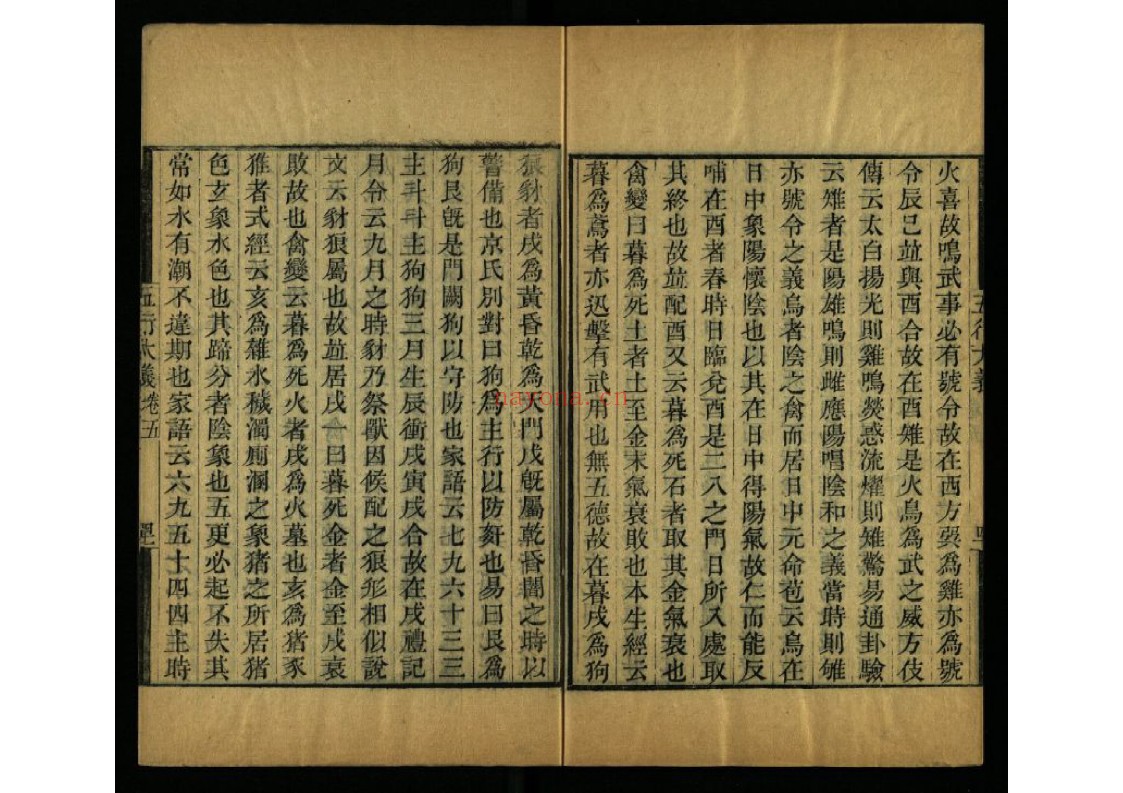 火喜故鳴武事必有號令故在西方要為雞亦為號
令辰巳並與酉合故在酉雉是火鳥為武之威方伎
傳云太白揚光則雞鳴熒惑流燿則雉驚易通卦驗
云雉者是陽雄鳴則雌應陽唱陰和之義當時則雊
亦號令之義烏者陰之禽而居日中元命苞云烏在
日中象陽懷陰也以其在日中得陽氣故仁而能反
哺在酉者春時日臨兌酉是二八之門日所入處取
其終也故並配酉又云暮為死石者取其金氣衰也
禽變曰暮為死土者土至金末氣衰敗也本生經云
暮為鳶者亦迅擊有武用也無五德故在暮戌為狗
狼豺者戌為黃昏乾為天門戌旣屬乾昏闇之時以
警備也京氏別對曰狗為主行以防姦也易曰艮為
狗艮旣是門闕狗以守防也家語云七九六十三三
主斗斗主狗狗三月生辰衝戌寅戌合故在戌禮記
月令云九月之時豺乃祭獸因候配之狼形相似說
文云豺狼屬也故並居戌一曰暮死金者金至戌衰
敗故也禽變云暮為死火者戌為火墓也亥為猪豕
猚者式經云亥為雜水穢濁廁溷之象猪之所居猪
色玄象水色也其蹄分者陰象也五更必起不失其
常如水有潮不違期也家語云六九五十四四主時
五行大義
五行大義卷五
naxona.cn